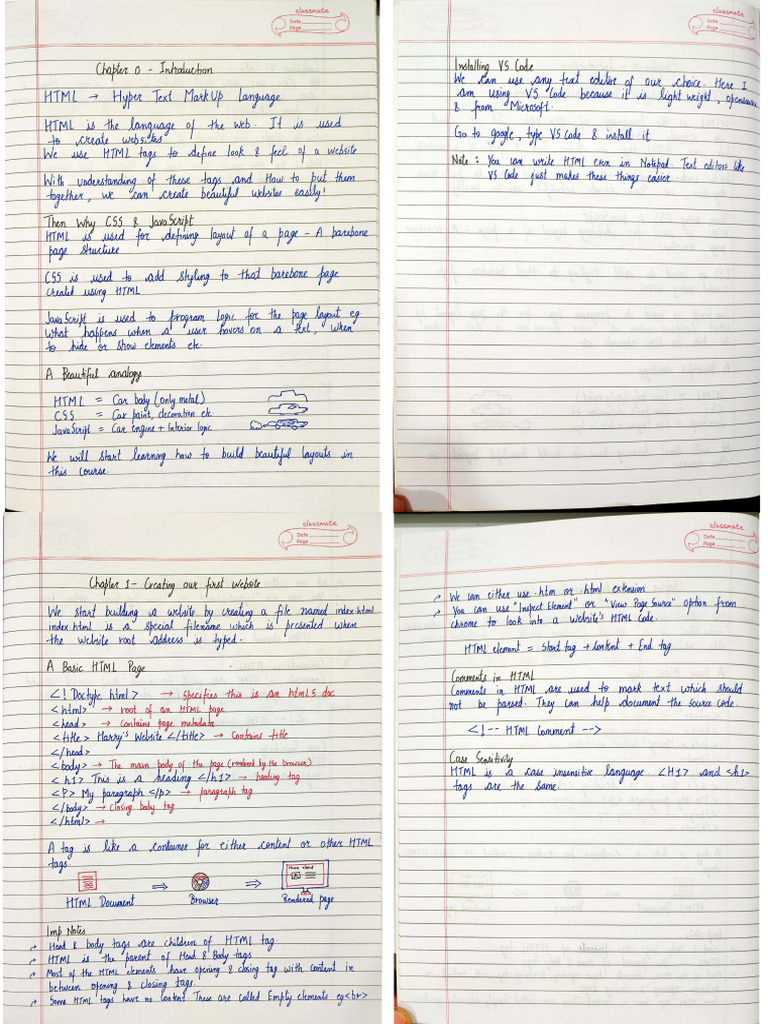 classmate
Date
Page
Chapter 0 - Introduction
HTML → Hyper Text MarkUp Language
HTML is the language of the web. It is used
to create websites
We use HTML tags to define look & feel of a website
With understanding of these tags and How to put them
together, we can create beautiful websites easily!
Then Why CSS & JavaScript
HTML is used for defining layout of a page - A barebone
page structure
CSS is used to add styling to that barebone page
created using HTML
JavaScript is used to program logic for the page layout eg
What happens when a user hovers on a text, When
to hide or show elements etc.
A Beautiful analogy
HTML = Car body (only metal)
CSS = Car paint, decoration etc.
JavaScript = Car engine + Interior logic
We will start learning how to build beautiful layouts in
this course.
classmate
Date
Page
Installing VS Code
We can use any text editor of our choice. Here I
am using VS Code because it is light weight, opensource
& from Microsoft.
Go to google, type VS Code & install it
Note : You can write HTML even in Notepad. Text editors like
VS Code just makes these things easier
classmate
Date
Page
Chapter 1 - Creating our first Website
We start building a website by creating a file named index.html
index.html is a special filename which is presented when
the website root address is typed.
A Basic HTML Page
<! Doctype html> → specifies this is an html5 doc
<html> → root of an HTML page
<head> → contains page metadata
<title> Harry's Website </title> → Contains title
</head>
<body> → The main body of the page (rendered by the browser)
<h1> This is a heading </h1> → heading tag
<P> My paragraph </p> → paragraph tag
</body> → closing body tag
</html> →
A tag is like a container for either content or other HTML
tags.
HTML Document ⇒ Browser ⇒ Rendered page
Imp Notes
→ Head & body tags are children of HTML tag.
→ HTML is the parent of Head & Body tags
→ Most of the HTML elements have opening & closing tag with content in
between opening & closing tags.
→ Some HTML tags have no content. These are called Empty elements eg <br>
classmate
Date
Page
→ We can either use .htm or html extension
→ You can use "Inspect Element" or "View Page Source" option from
chrome to look into a website's HTML Code.
HTML element = Start tag + Content + End tag
Comments in HTML
Comments in HTML are used to mark text which should
not be parsed. They can help document the source code.
<!-- HTML Comment -->
Case Sensitivity
HTML is a case insensitive language. <H1> and <h1>
tags are the same.